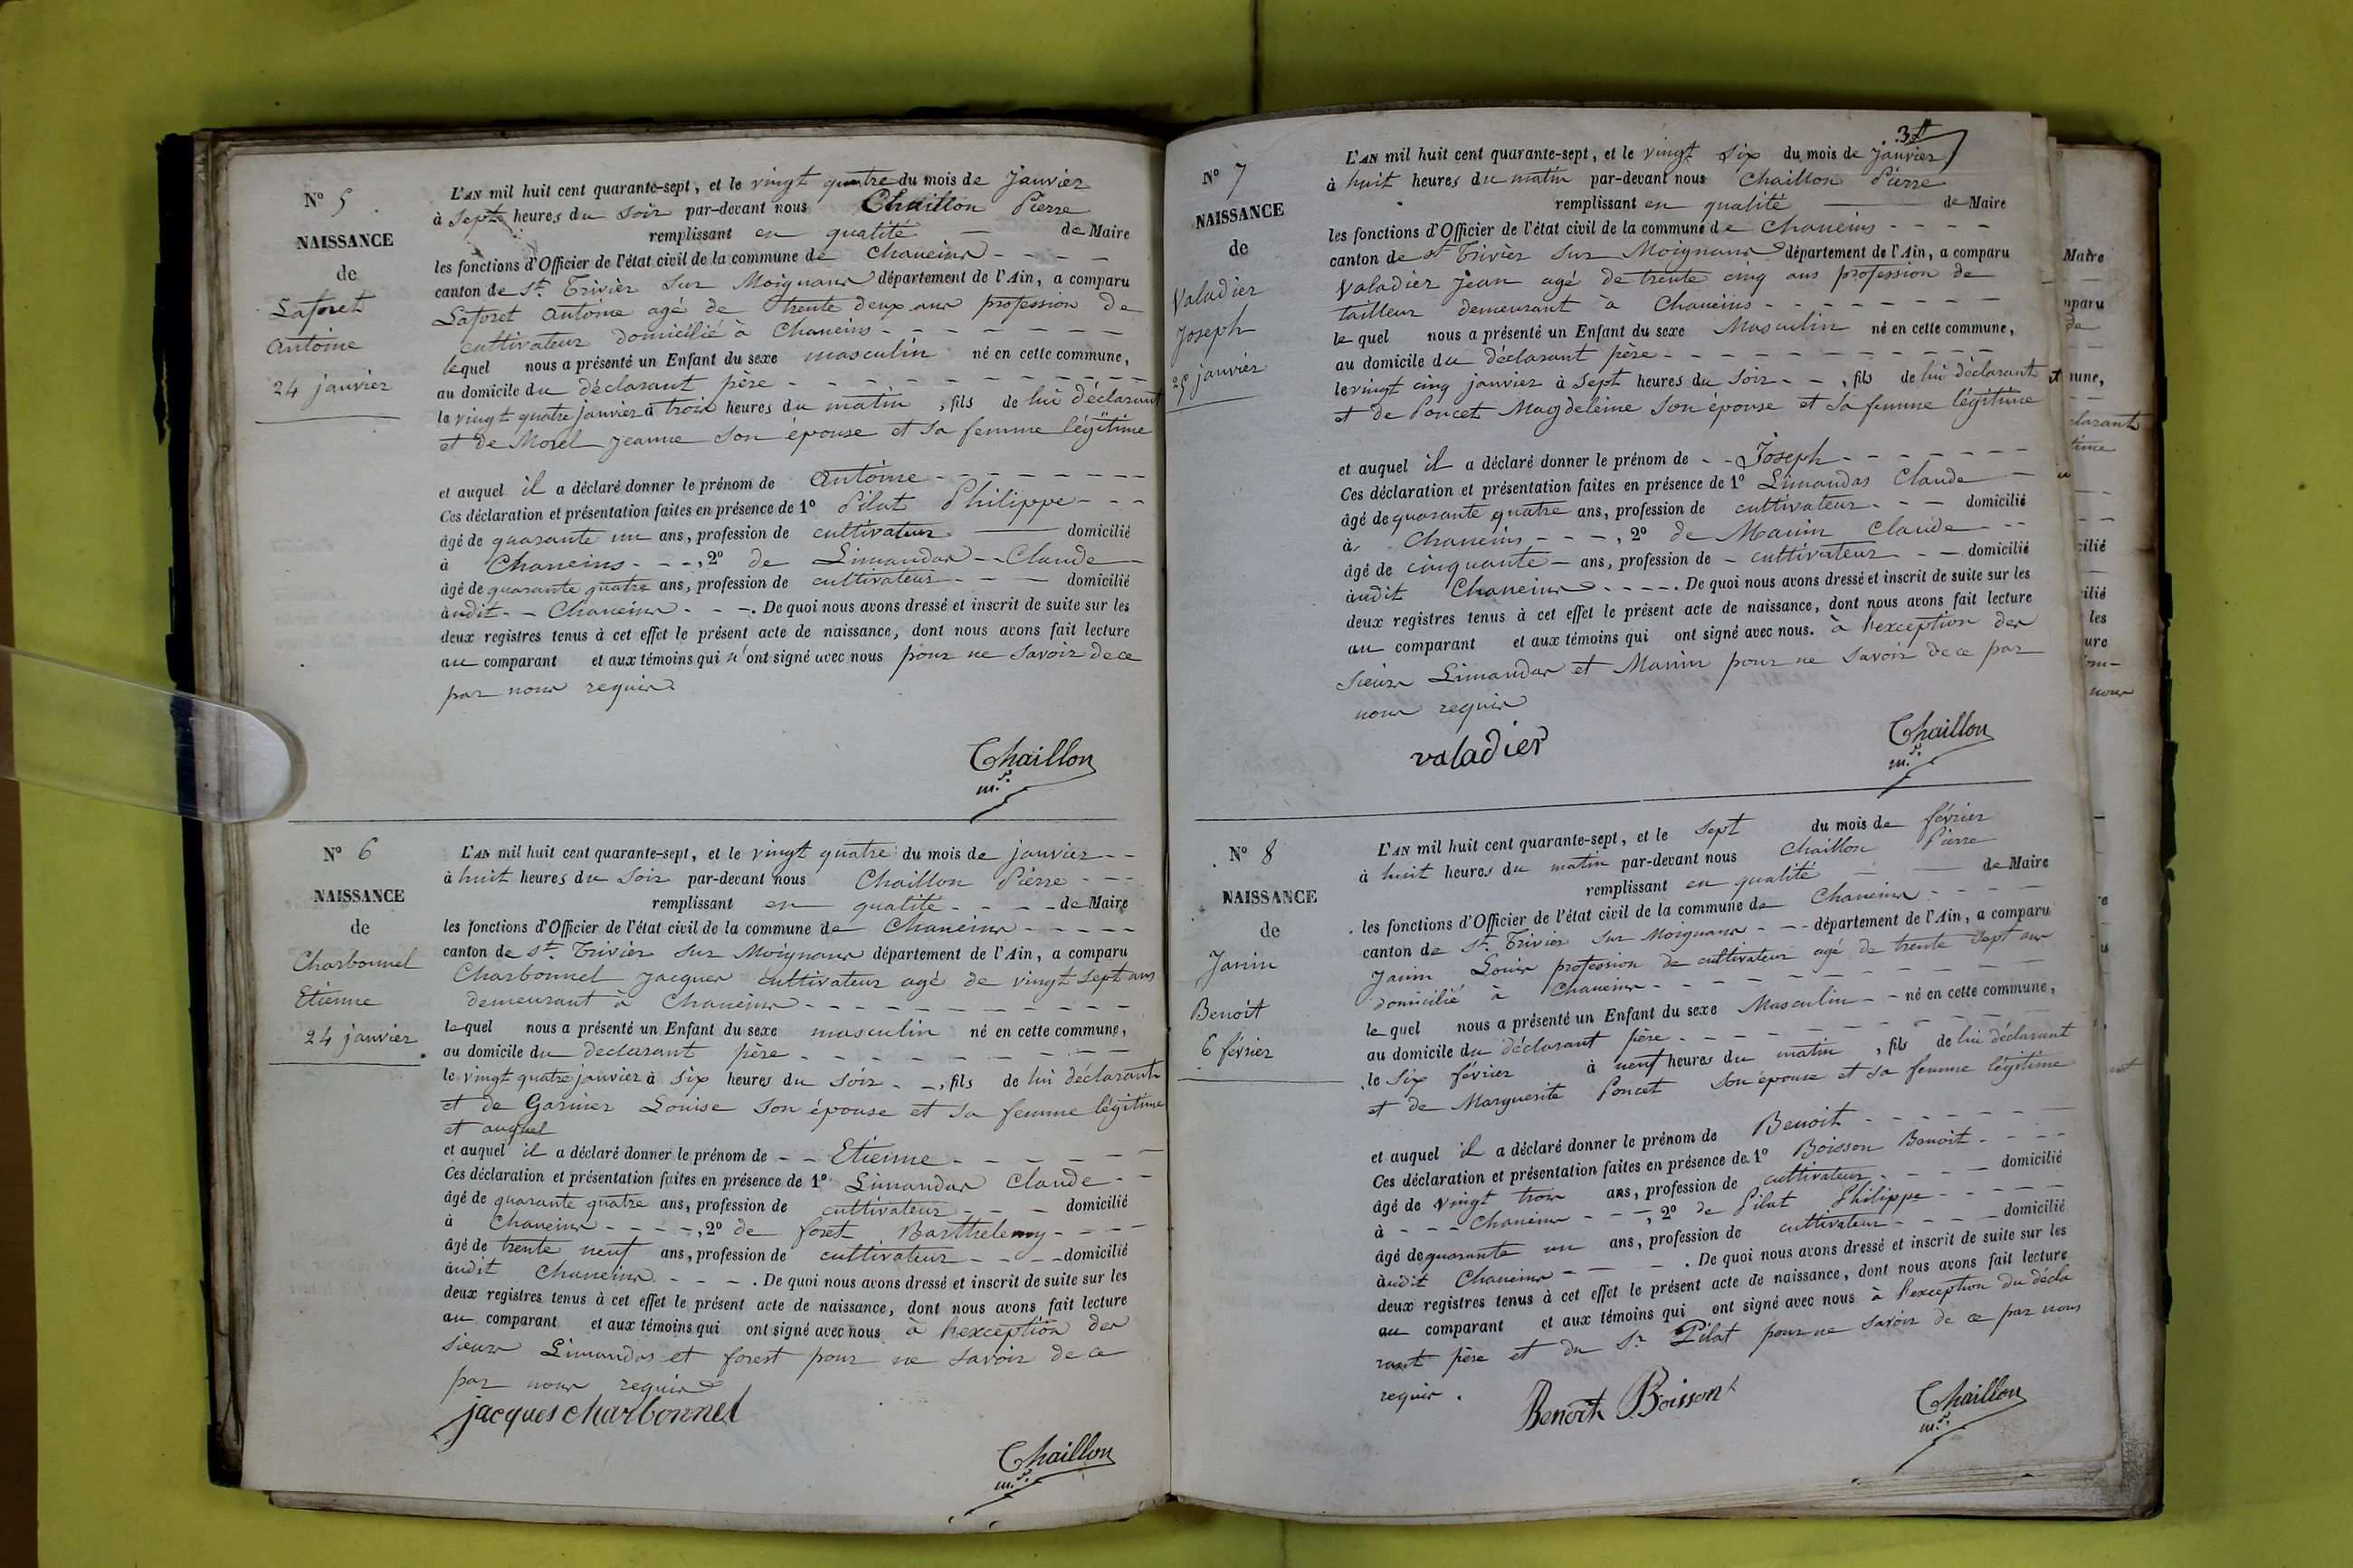 N° 5
NAISSANCE
de
Laforet
Antoine
24 janvier
L'AN mil huit cent quarante-sept, et le vingt quatre du mois de janvier
à sept heures du soir par-devant nous Chaillon Pierre
remplissant en qualité de Maire
les fonctions d'Officier de l'état civil de la commune de Chaneins
canton de St. Trivier sur Moignans département de l'Ain, a comparu
Laforet Antoine agé de trente deux ans profession de
cultivateur domicilié à Chaneins
lequel nous a présenté un Enfant du sexe masculin né en cette commune,
au domicile du déclarant père
le vingt quatre janvier à trois heures du matin, fils de lui déclarant
et de Morel Jeanne son épouse et sa femme légitime
et auquel il a déclaré donner le prénom de Antoine
Ces déclaration et présentation faites en présence de 1° Pilat Philippe
âgé de quarante un ans, profession de cultivateur domicilié
à Chaneins, 2° de Limandas Claude
âgé de quarante quatre ans, profession de cultivateur domicilié
audit Chaneins. De quoi nous avons dressé et inscrit de suite sur les
deux registres tenus à cet effet le présent acte de naissance, dont nous avons fait lecture
au comparant et aux témoins qui n'ont signé avec nous pour ne savoir de ce
par nous requis
Chaillon
m.re
N° 6
NAISSANCE
de
Charbonnel
Etienne
24 janvier
L'AN mil huit cent quarante-sept, et le vingt quatre du mois de janvier
à huit heures du soir par-devant nous Chaillon Pierre
remplissant en qualité de Maire
les fonctions d'Officier de l'état civil de la commune de Chaneins
canton de St. Trivier sur Moignans département de l'Ain, a comparu
Charbonnel Jacques cultivateur agé de vingt sept ans
demeurant à Chaneins
lequel nous a présenté un Enfant du sexe masculin né en cette commune,
au domicile du declarant père
le vingt quatre janvier à six heures du soir, fils de lui déclarant
et de Garnier Louise son épouse et sa femme légitime
et auquel
et auquel il a déclaré donner le prénom de Etienne
Ces déclaration et présentation faites en présence de 1° Limandas Claude
âgé de quarante quatre ans, profession de cultivateur domicilié
à Chaneins, 2° de forest Barthelemy
âgé de trente neuf ans, profession de cultivateur domicilié
audit Chaneins. De quoi nous avons dressé et inscrit de suite sur les
deux registres tenus à cet effet le présent acte de naissance, dont nous avons fait lecture
au comparant et aux témoins qui ont signé avec nous à l'exception des
sieurs Limandas et forest pour ne savoir de ce
par nous requis
jacques charbonnel
Chaillon
m.re
3
N° 7
NAISSANCE
de
Valadier
Joseph
25 janvier
L'AN mil huit cent quarante-sept, et le vingt six du mois de janvier
à huit heures du matin par-devant nous Chaillon Pierre
remplissant en qualité de Maire
les fonctions d'Officier de l'état civil de la commune de Chaneins
canton de St Trivier sur Moignans département de l'Ain, a comparu
Valadier Jean agé de trente cinq ans profession de
tailleur demeurant à Chaneins
lequel nous a présenté un Enfant du sexe Masculin né en cette commune,
au domicile du déclarant père
le vingt cinq janvier à sept heures du soir, fils de lui déclarant
et de Poncet Magdeleine son épouse et sa femme légitime
et auquel il a déclaré donner le prénom de Joseph
Ces déclaration et présentation faites en présence de 1° Limandas Claude
âgé de quarante quatre ans, profession de cultivateur domicilié
à Chaneins, 2° de Manin Claude
âgé de cinquante ans, profession de cultivateur domicilié
audit Chaneins. De quoi nous avons dressé et inscrit de suite sur les
deux registres tenus à cet effet le présent acte de naissance, dont nous avons fait lecture
au comparant et aux témoins qui ont signé avec nous. à l'exception des
sieurs Limandas et Manin pour ne savoir de ce par
nous requis
valadier
Chaillon
m.re
N° 8
NAISSANCE
de
Janin
Benoit
6 février
L'AN mil huit cent quarante-sept, et le sept du mois de février
à huit heures du matin par-devant nous Chaillon Pierre
remplissant en qualité de Maire
les fonctions d'Officier de l'état civil de la commune de Chaneins
canton de St. Trivier sur Moignans département de l'Ain, a comparu
Janin Louis profession de cultivateur agé de trente sept ans
domicilié à Chaneins
lequel nous a présenté un Enfant du sexe Masculin né en cette commune,
au domicile du déclarant père
le six février à neuf heures du matin, fils de lui déclarant
et de Marguerite Poncet son épouse et sa femme légitime
et auquel il a déclaré donner le prénom de Benoit
Ces déclaration et présentation faites en présence de 1° Boisson Benoit
âgé de vingt trois ans, profession de cultivateur domicilié
à Chaneins, 2° de Pilat Philippe
âgé de quarante un ans, profession de cultivateur domicilié
audit Chaneins. De quoi nous avons dressé et inscrit de suite sur les
deux registres tenus à cet effet le présent acte de naissance, dont nous avons fait lecture
au comparant et aux témoins qui ont signé avec nous à l'exception du décla
rant père et du Sr. Pilat pour ne savoir de ce par nous
requis.
Benoit Boisson
Chaillon
m.re